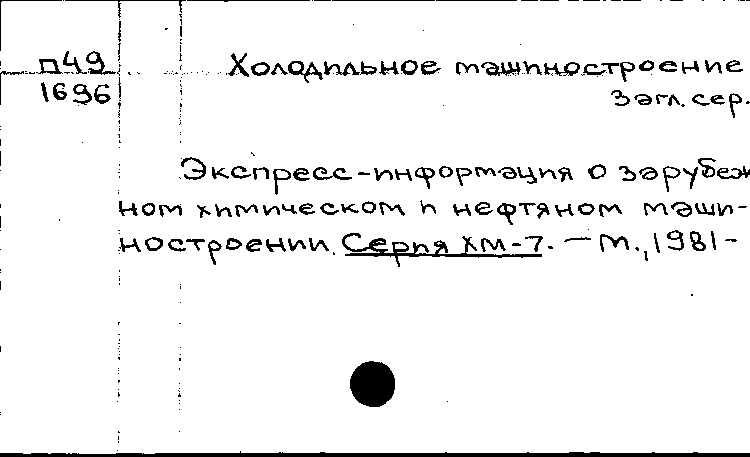 П49 Холодильное машиностроение
1696 Загл. сер.
Экспресс-информация о зарубеж
ном химическом и нефтяном маши-
ностроении. Серия ХМ-7. — М., 1981-